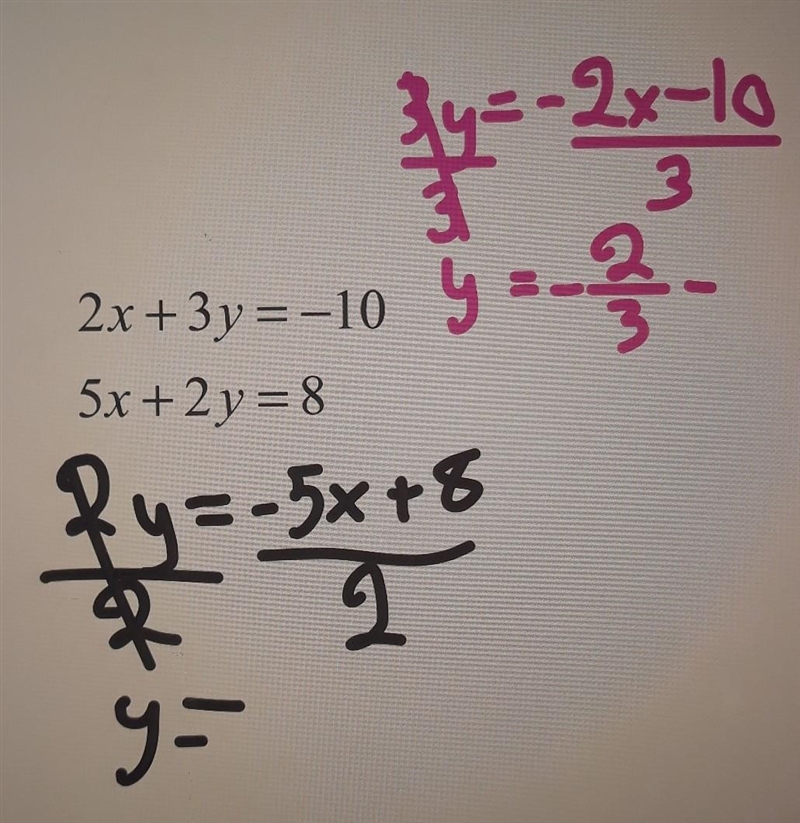 3y = -2x-10
3 3
y = -2/3 -
2x + 3y = -10
5x + 2y = 8
2y = -5x + 8
2 2
y =